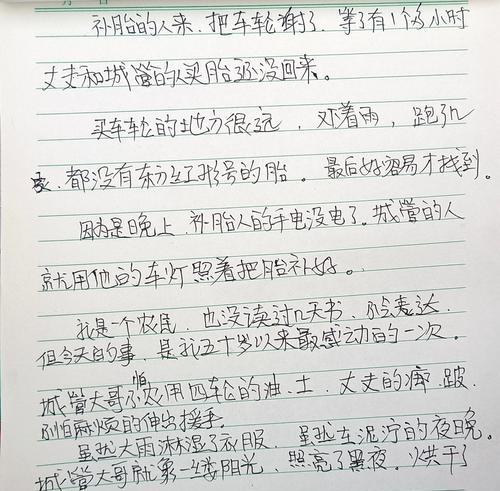 补胎的人来.把车轮谢了.等了有1个多小时
丈夫和城管的人买胎还没回来。
买车车轮的地方很远,对着雨,跑了几
家.都没有东方红形号的胎。最后好容易才找到.
因为是晚上.补胎人的手电没电了.城管的人
就用他的车灯照着把胎补好。
我是一个农民.也没读过几天书.不会表达.
但今天的事.是我五十岁以来最感动的一次。
城管大哥不怕 用四轮的油.土.丈夫的 .跛.
不怕麻烦的伸出援手.
虽然大雨淋湿了衣服.虽然车泥泞的夜晚。
城管大哥就象一缕阳光.照亮了黑夜.烘干了